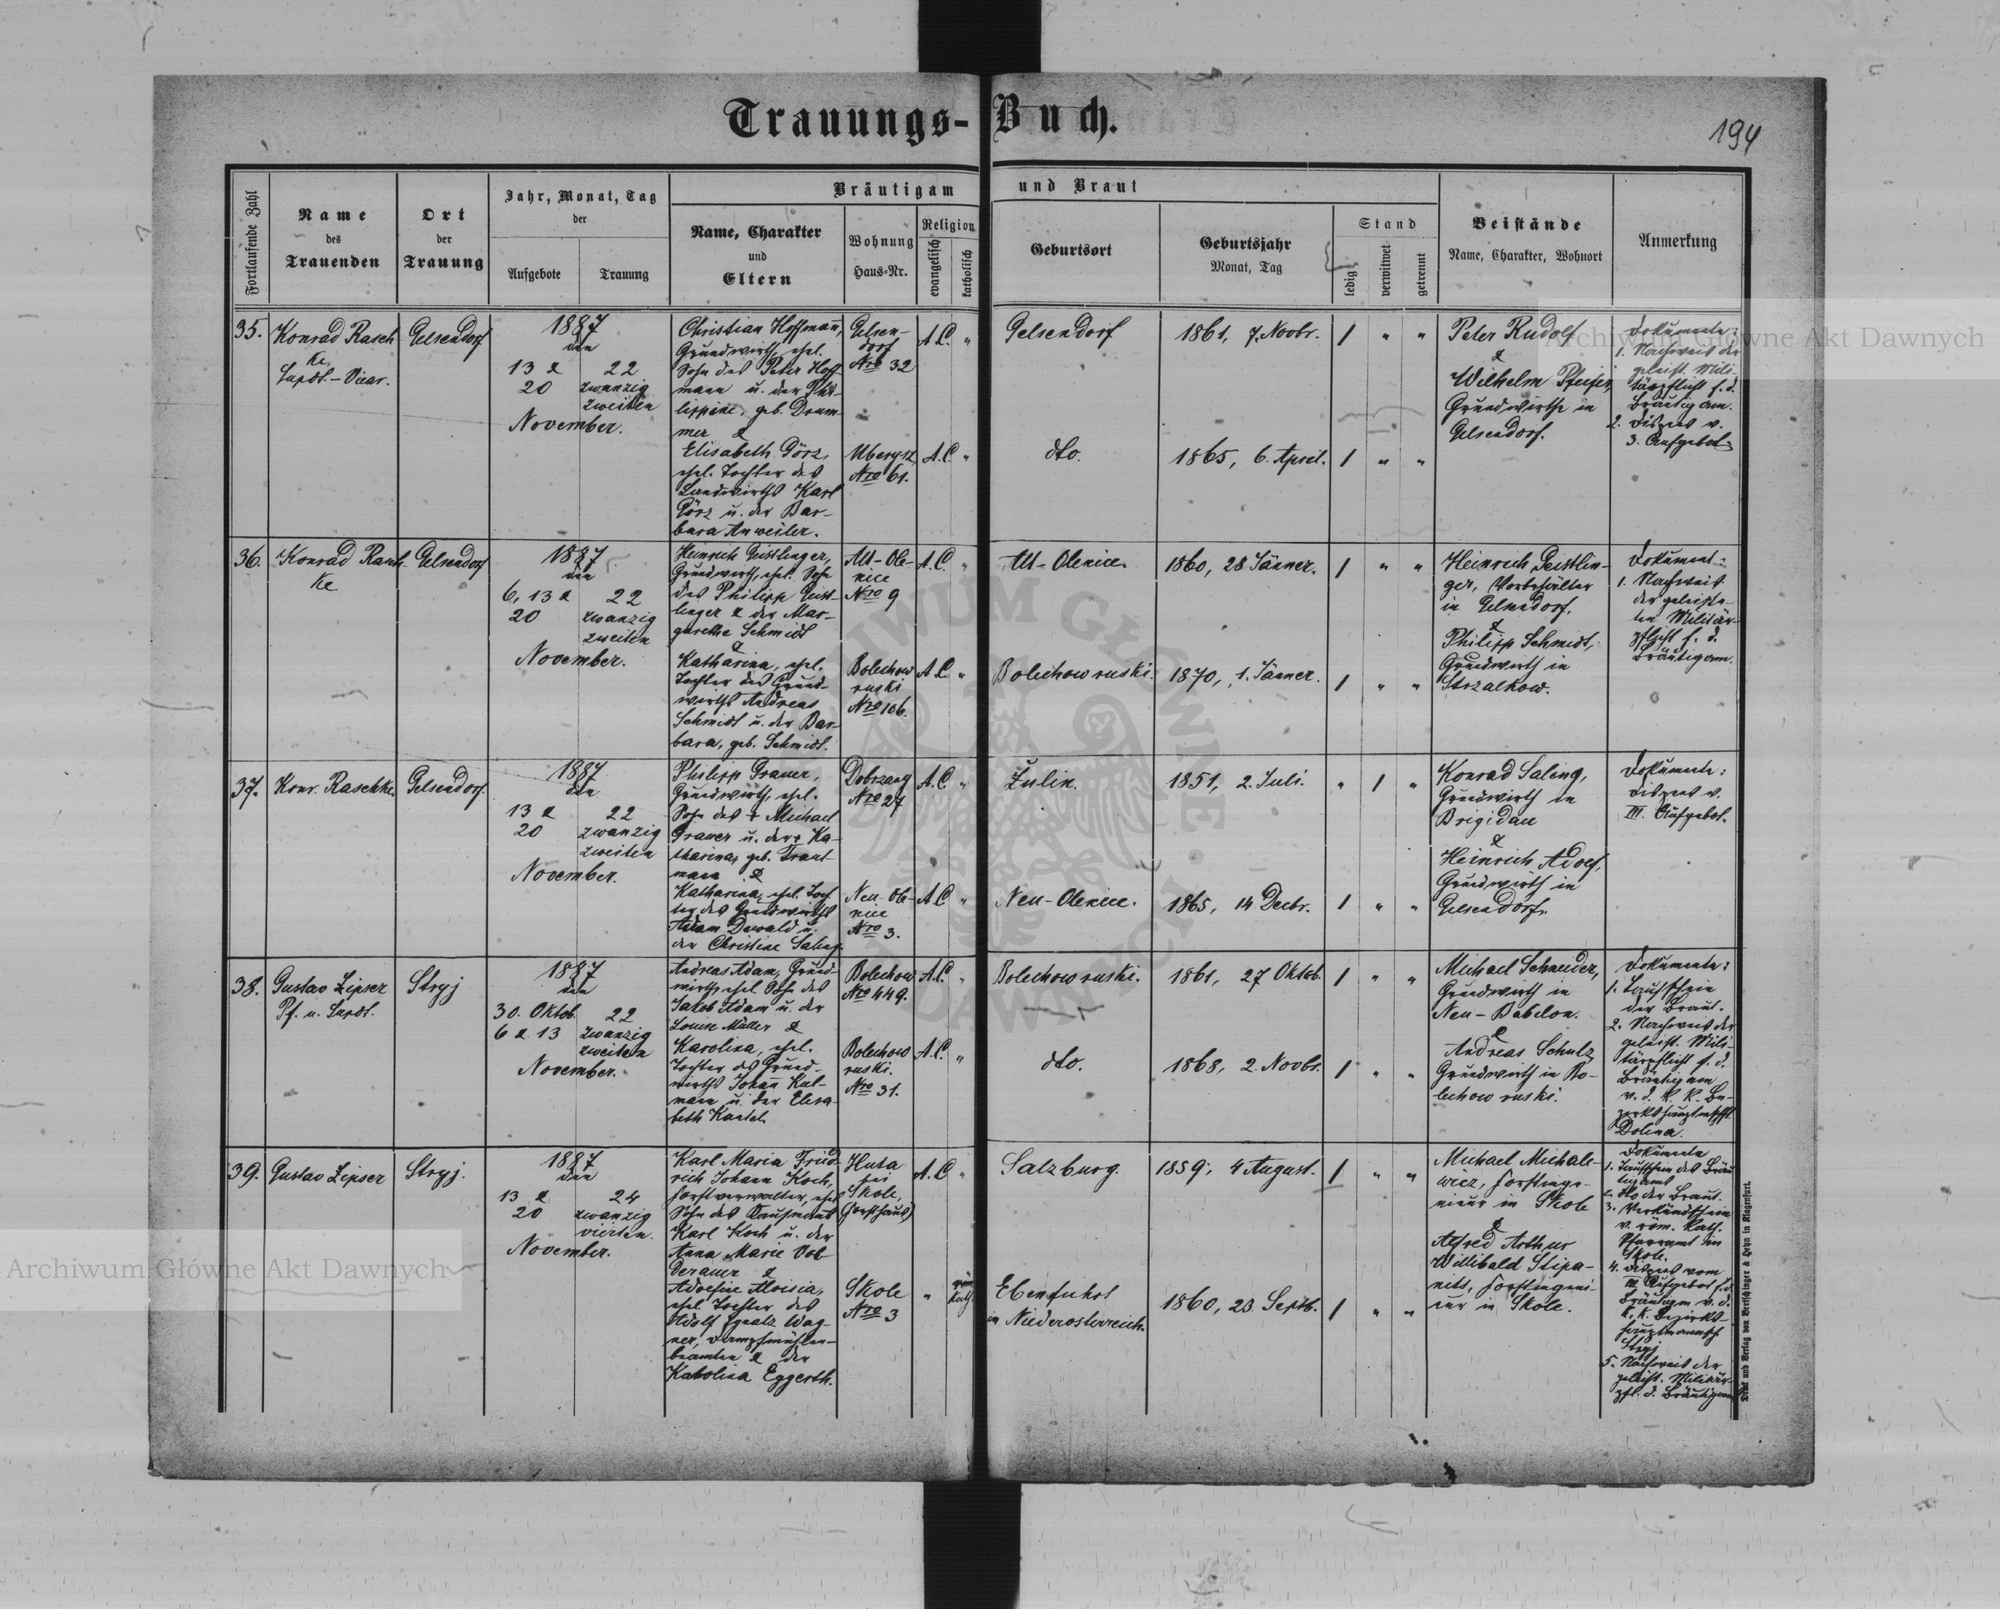 Trauungs-Buch.
194
Fortlaufende Zahl
Name
des
Trauenden
Ort
der
Trauung
Jahr, Monat, Tag
der
Aufgebote
Trauung
Bräutigam und Braut
Name, Charakter
und
Eltern
Wohnung
Haus-Nr.
Religion
evangelisch
katholisch
Geburtsort
Geburtsjahr
Monat, Tag
Stand
ledig
verwitwet
getrennt
Beistände
Name, Charakter, Wohnort
Anmerkung
35.
Konrad Rasch
ke
Supdt.-Vicar.
Gelsendorf
1887
den
13 &
20
22
zwanzig
zweiten
November.
Christian Hoffmann,
Grundwirth, ehel.
Sohn des Peter Hoff
mann u. der Phi-
lippine, geb. Drum
mer &
Elisabeth Görz,
ehel. Tochter des
Landwirths Karl
Görz u. der Bar-
bara Anweiler.
Gelsen-
dorf
Nro 32
Ugerysz.
Nro 61.
A.C. "
A.C. "
Gelsendorf
dto.
1861, 7. Novbr.
1865, 6. April.
1 " "
1 " "
Peter Rudolf
&
Wilhelm Pfeifer,
Grundwirthe in
Gelsendorf.
Dokumente:
1. Nachweis der
geleist. Mili-
tärpflicht f. d.
Bräutigam.
2. Dispens v.
3. Aufgebot.
36.
Konrad Rasch
ke
Gelsendorf
1887
den
6, 13 &
20
22
zwanzig
zweiten
November.
Heinrich Geistlinger,
Grundwirth, ehel. Sohn
des Philipp Geist
linger & der Mar-
garethe Schmidt
&
Katharina, ehel.
Tochter des Grund-
wirths Andreas
Schmidt u. der Bar-
bara, geb. Schmidt.
Alt-Ole-
nice
Nro 9
Bolechow
ruski
Nro 106.
A.C. "
A.C. "
Alt-Olenice.
Bolechow ruski.
1860, 28 Jänner.
1870, 1. Jänner.
1 " "
1 " "
Heinrich Geistlin-
ger,
in Gelsendorf.
&
Philipp Schmidt,
Grundwirth in
Strzalkow.
Dokument:
1. Nachweis
der geleiste-
ten Militär-
pflicht f. d.
Bräutigam.
37.
Konr. Raschke.
Gelsendorf.
1887
den
13 &
20
22
zwanzig
zweiten
November.
Philipp Grauer,
Grundwirth, ehel.
Sohn des + Michael
Grauer u. der + Ka-
tharina, geb. Traut
mann &
Katharina, ehel. Toch
ter des Grundwirths
Adam Dewald u.
der Christine Saling.
Dobrzany
Nro 27
Neu-Ole-
nice
Nro 3.
A.C. "
A.C. "
Żulin.
Neu-Olenice.
1851, 2. Juli.
1865, 14 Decbr.
" 1 "
1 " "
Konrad Saling,
Grundwirth in
Brigidau
&
Heinrich Adolf,
Grundwirth in
Gelsendorf.
Dokumente:
Dispens v.
III. Aufgebot.
38.
Gustav Zipser
Pf. u. Supdt.
Stryj
1887
den
30. Oktob.
6 & 13
22
zwanzig
zweiten
November.
Andreas Adam, Grund-
wirth, ehel. Sohn des
Jakob Adam u. der
Louise Müller &
Karolina, ehel.
Tochter des Grund-
wirths Johann Kul-
mann u. der Elisa-
beth Kandel.
Bolechow
Nro 449.
Bolechow
ruski.
Nro 31.
A.C. "
A.C. "
Bolechow ruski.
dto.
1861, 27 Oktob.
1868, 2. Novbr.
1 " "
1 " "
Michael Schneider,
Grundwirth in
Neu-Babilon.
&
Andreas Schulz,
Grundwirth in Bo-
lechow ruski.
Dokumente:
1. Taufschein
der Braut.
2. Nachweis der
geleist. Mili-
tärpflicht f. d.
Bräutigam
v. d. k. k. Be-
zirkshauptmschft
Dolina.
39.
Gustav Zipser
Stryj.
1887
den
13 &
20
24
zwanzig
vierten.
November.
Karl Maria Fried-
rich Johann Koch,
Forstverwalter, ehel
Sohn des Kaufmanns
Karl Koch u. der
Anna Marie Dob
derauer &
Adolfine Aloisia,
ehel. Tochter des
Adolf Ignatz Wag-
ner, Dampfmühlen-
beamten & der
Karolina Eggerth.
Huta
bei
Skole,
(Forsthaus)
Skole
Nro 3
A.C. "
" röm.
Kath.
Salzburg.
Ebenfurt
in Niederösterreich.
1859, 4 August.
1860, 23. Septb.
1 " "
1 " "
Michael Michale-
wicz, Forstinge-
nieur in Skole
&
Alfred Arthur
Willibald Stipa-
nits, Forstingeni-
eur in Skole.
Dokumente
1. Taufschein des Bräu
tigams
2. dto der Braut.
3. Verkündschein
v. röm. kath.
Pfarramt in
Skole.
4. Dispens vom
III. Aufgebot f. d.
Bräutigam v. d.
k. k. Bezirks-
hauptmannsch
Stryj
5. Nachweis der
geleist. Militär-
pfl. d. Bräutigams
Druck und Verlag von Bertschinger & Heyn in Klagenfurt.
Archiwum Główne Akt Dawnych
Archiwum Główne Akt Dawnych
ARCHIWUM GŁÓWNE AKT DAWNYCH